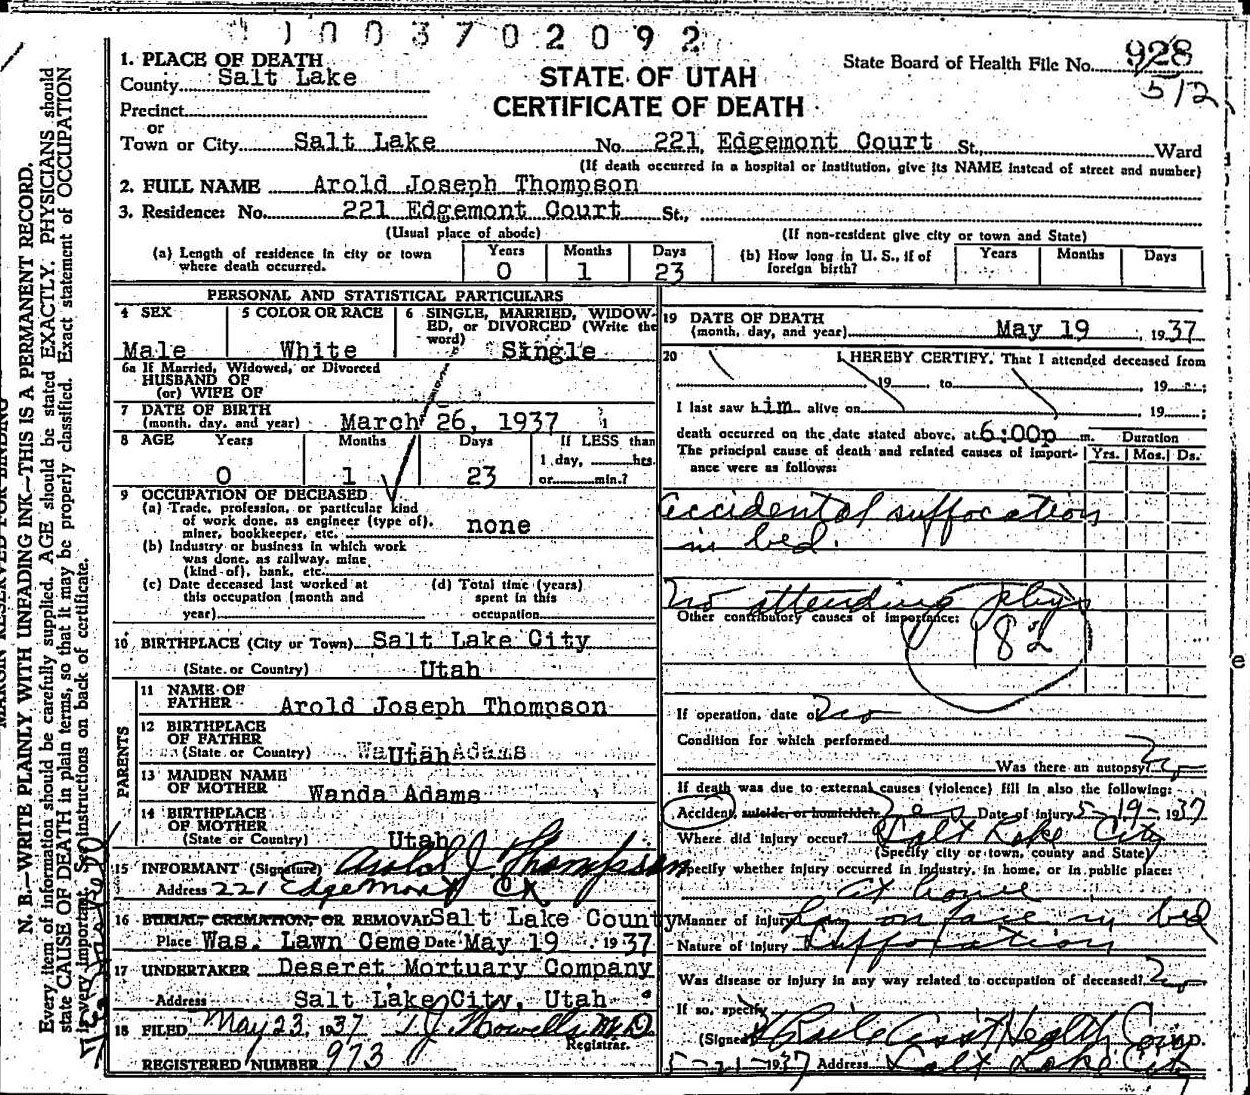 1003702092
1. PLACE OF DEATH
County Salt Lake
STATE OF UTAH
CERTIFICATE OF DEATH
State Board of Health File No. 928
512
Precinct
or
Town or City Salt Lake No. 221 Edgemont Court St., Ward
(If death occurred in a hospital or institution, give its NAME instead of street and number)
2. FULL NAME Arold Joseph Thompson
3. Residence: No. 221 Edgemont Court St.,
(Usual place of abode) (If non-resident give city or town and State)
(a) Length of residence in city or town where death occurred. Years 0 Months 1 Days 23
(b) How long in U. S., if of foreign birth? Years Months Days
PERSONAL AND STATISTICAL PARTICULARS
4 SEX Male
5 COLOR OR RACE White
6 SINGLE, MARRIED, WIDOWED, or DIVORCED (Write the word) Single
6a If Married, Widowed, or Divorced
HUSBAND OF
(or) WIFE OF
7 DATE OF BIRTH
(month, day, and year) March 26, 1937
8 AGE Years 0 Months 1 Days 23 If LESS than 1 day, hrs. or min.?
9 OCCUPATION OF DECEASED
(a) Trade, profession, or particular kind of work done, as engineer (type of), miner, bookkeeper, etc. none
(b) Industry or business in which work was done, as railway, mine (kind of), bank, etc.
(c) Date deceased last worked at this occupation (month and year)
(d) Total time (years) spent in this occupation
10 BIRTHPLACE (City or Town) Salt Lake City
(State or Country) Utah
PARENTS
11 NAME OF FATHER Arold Joseph Thompson
12 BIRTHPLACE OF FATHER
(State or Country) Utah
13 MAIDEN NAME OF MOTHER Wanda Adams
14 BIRTHPLACE OF MOTHER
(State or Country) Utah
15 INFORMANT (Signature) Arold J Thompson
Address 221 Edgemont Ct
16 BURIAL, CREMATION, OR REMOVAL Salt Lake County
Place Was. Lawn Ceme Date May 19 1937
17 UNDERTAKER Deseret Mortuary Company
Address Salt Lake City, Utah
18 FILED May 23, 1937 T J Howells M.D.
Registrar.
REGISTERED NUMBER 973
19 DATE OF DEATH
(month, day, and year) May 19, 1937
20 I HEREBY CERTIFY, That I attended deceased from
, 19 to , 19 ;
I last saw him alive on , 19 ;
death occurred on the date stated above, at 6:00p m.
The principal cause of death and related causes of importance were as follows:
Duration
Yrs. Mos. Ds.
Accidental suffocation
in bed.
No attending phys
Other contributory causes of importance:
182
If operation, date of No
Condition for which performed
Was there an autopsy? No
If death was due to external causes (violence) fill in also the following:
Accident, suicide, or homicide? Date of injury 5-19-1937
Where did injury occur? Salt Lake City
(Specify city or town, county and State)
Specify whether injury occurred in industry, in home, or in public place:
At home
Manner of injury Lay on face in bed
Nature of injury Suffocation
Was disease or injury in any way related to occupation of deceased? No
If so, specify
(Signed) Asst Health Com M.D.
5-21-1937 Address Salt Lake City
MARGIN RESERVED FOR BINDING
N. B.—WRITE PLAINLY WITH UNFADING INK—THIS IS A PERMANENT RECORD.
Every item of information should be carefully supplied. AGE should be stated EXACTLY. PHYSICIANS should
state CAUSE OF DEATH in plain terms, so that it may be properly classified. Exact statement of OCCUPATION
is very important. See instructions on back of certificate.